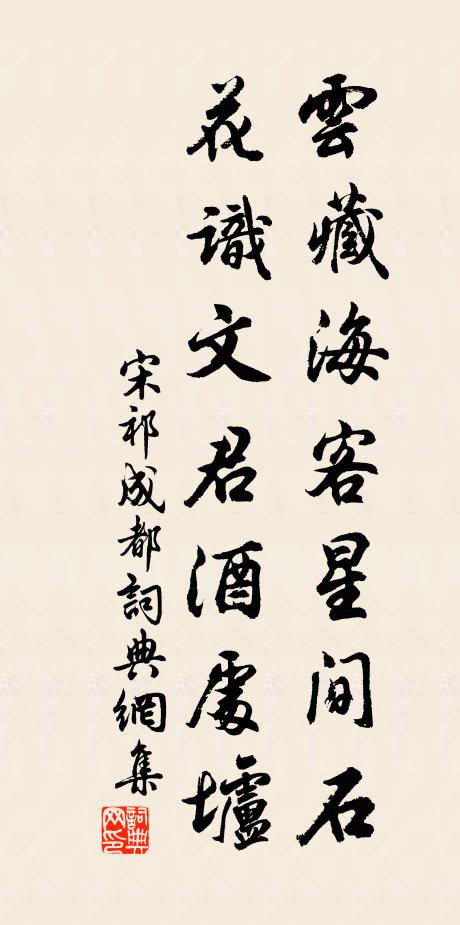 雲藏海客星間石
花識文君酒處壚
宋祁成都詞典網集
詞典网印